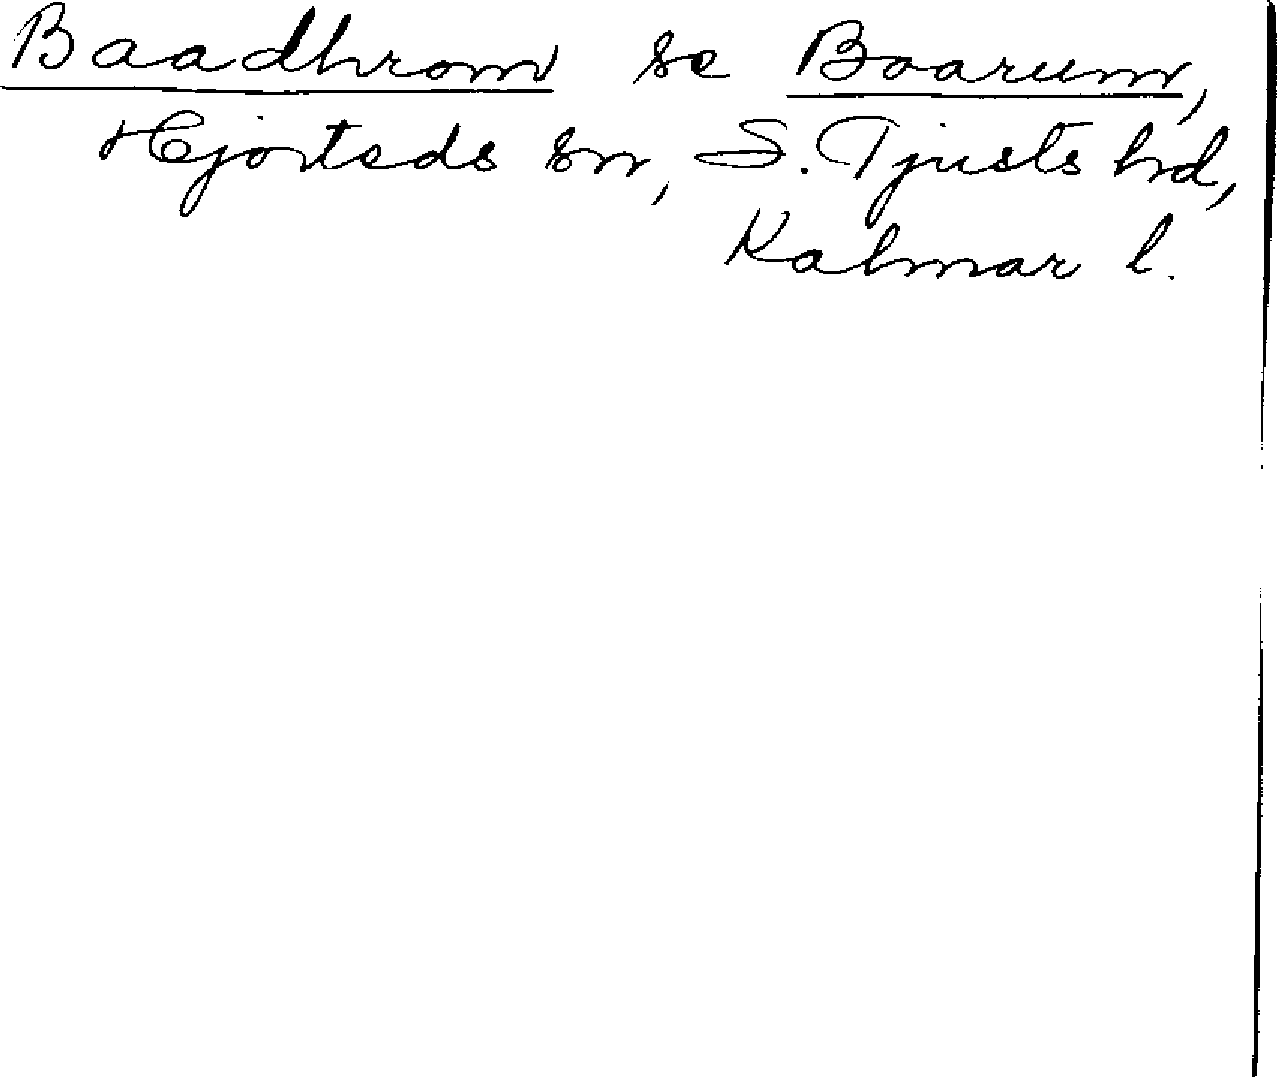 Baadhrom se Boarum,
Hjorteds sn, S. Tjusts hd,
Kalmar l.